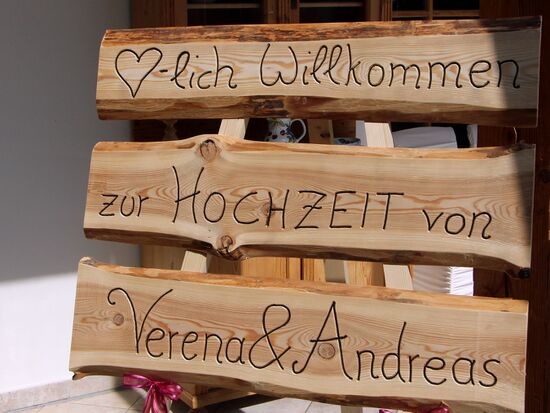 ♡-lich Willkommen
zur HOCHZEIT von
Verena & Andreas